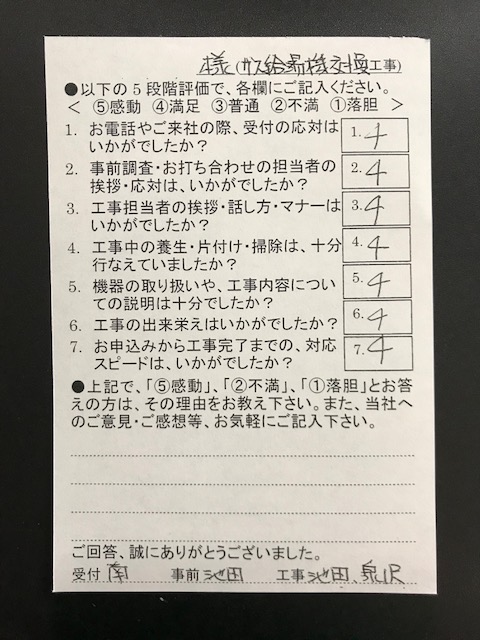 様(ガス給湯機交換工事)
●以下の5段階評価で、各欄にご記入ください。
< ⑤感動 ④満足 ③普通 ②不満 ①落胆 >
1. お電話やご来社の際、受付の応対は 1. 4
いかがでしたか?
2. 事前調査・お打ち合わせの担当者の 2. 4
挨拶・応対は、いかがでしたか?
3. 工事担当者の挨拶・話し方・マナーは 3. 4
いかがでしたか?
4. 工事中の養生・片付け・掃除は、十分 4. 4
行なえていましたか?
5. 機器の取り扱いや、工事内容につい 5. 4
ての説明は十分でしたか?
6. 工事の出来栄えはいかがでしたか? 6. 4
7. お申込みから工事完了までの、対応 7. 4
スピードは、いかがでしたか?
●上記で、「⑤感動」、「②不満」、「①落胆」とお答
えの方は、その理由をお教え下さい。また、当社へ
のご意見・ご感想等、お気軽にご記入下さい。
ご回答、誠にありがとうございました。
受付 南 事前 池田 工事 池田、泉沢